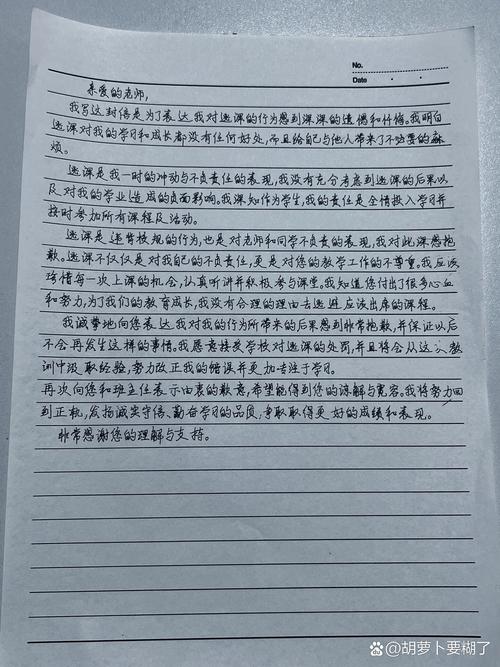 No.
Date
亲爱的老师,
我写这封信是为了表达我对逃课的行为感到深深的遗憾和忏悔。我明白
逃课对我的学习和成长都没有任何好处,而且给自己与他人带来了不必要的麻
烦。
逃课是我一时的冲动与不负责任的表现,我没有充分考虑到逃课的后果以
及对我的学业造成的负面影响。我深知作为学生,我的责任是全情投入学习并
按时参加所有课程及活动。
逃课是违背校规的行为,也是对老师和同学不负责的表现,我对此深感抱
歉。逃课不仅仅是对我自己的不负责,更是对您的教学工作的不尊重。我应该
珍惜每一次上课的机会,认真听讲并积极参与课堂。我知道您付出了很多心血
和努力,为了我们的教育成长,我没有合理的理由去逃避应该出席的课程。
我诚挚地向您表达我对我的行为所带来的后果感到非常抱歉,并保证以后
不会再发生这样的事情。我愿意接受学校对逃课的处罚,并且将会从这次教
训中汲取经验,努力改正我的错误并更加专注于学习。
再次向您和班主任表示由衷的歉意,希望能得到您的谅解与宽容。我将努力回
到正轨,发扬诚实守信、勤奋学习的品质,争取取得更好的成绩和表现。
非常感谢您的理解与支持。
@胡萝卜要糊了